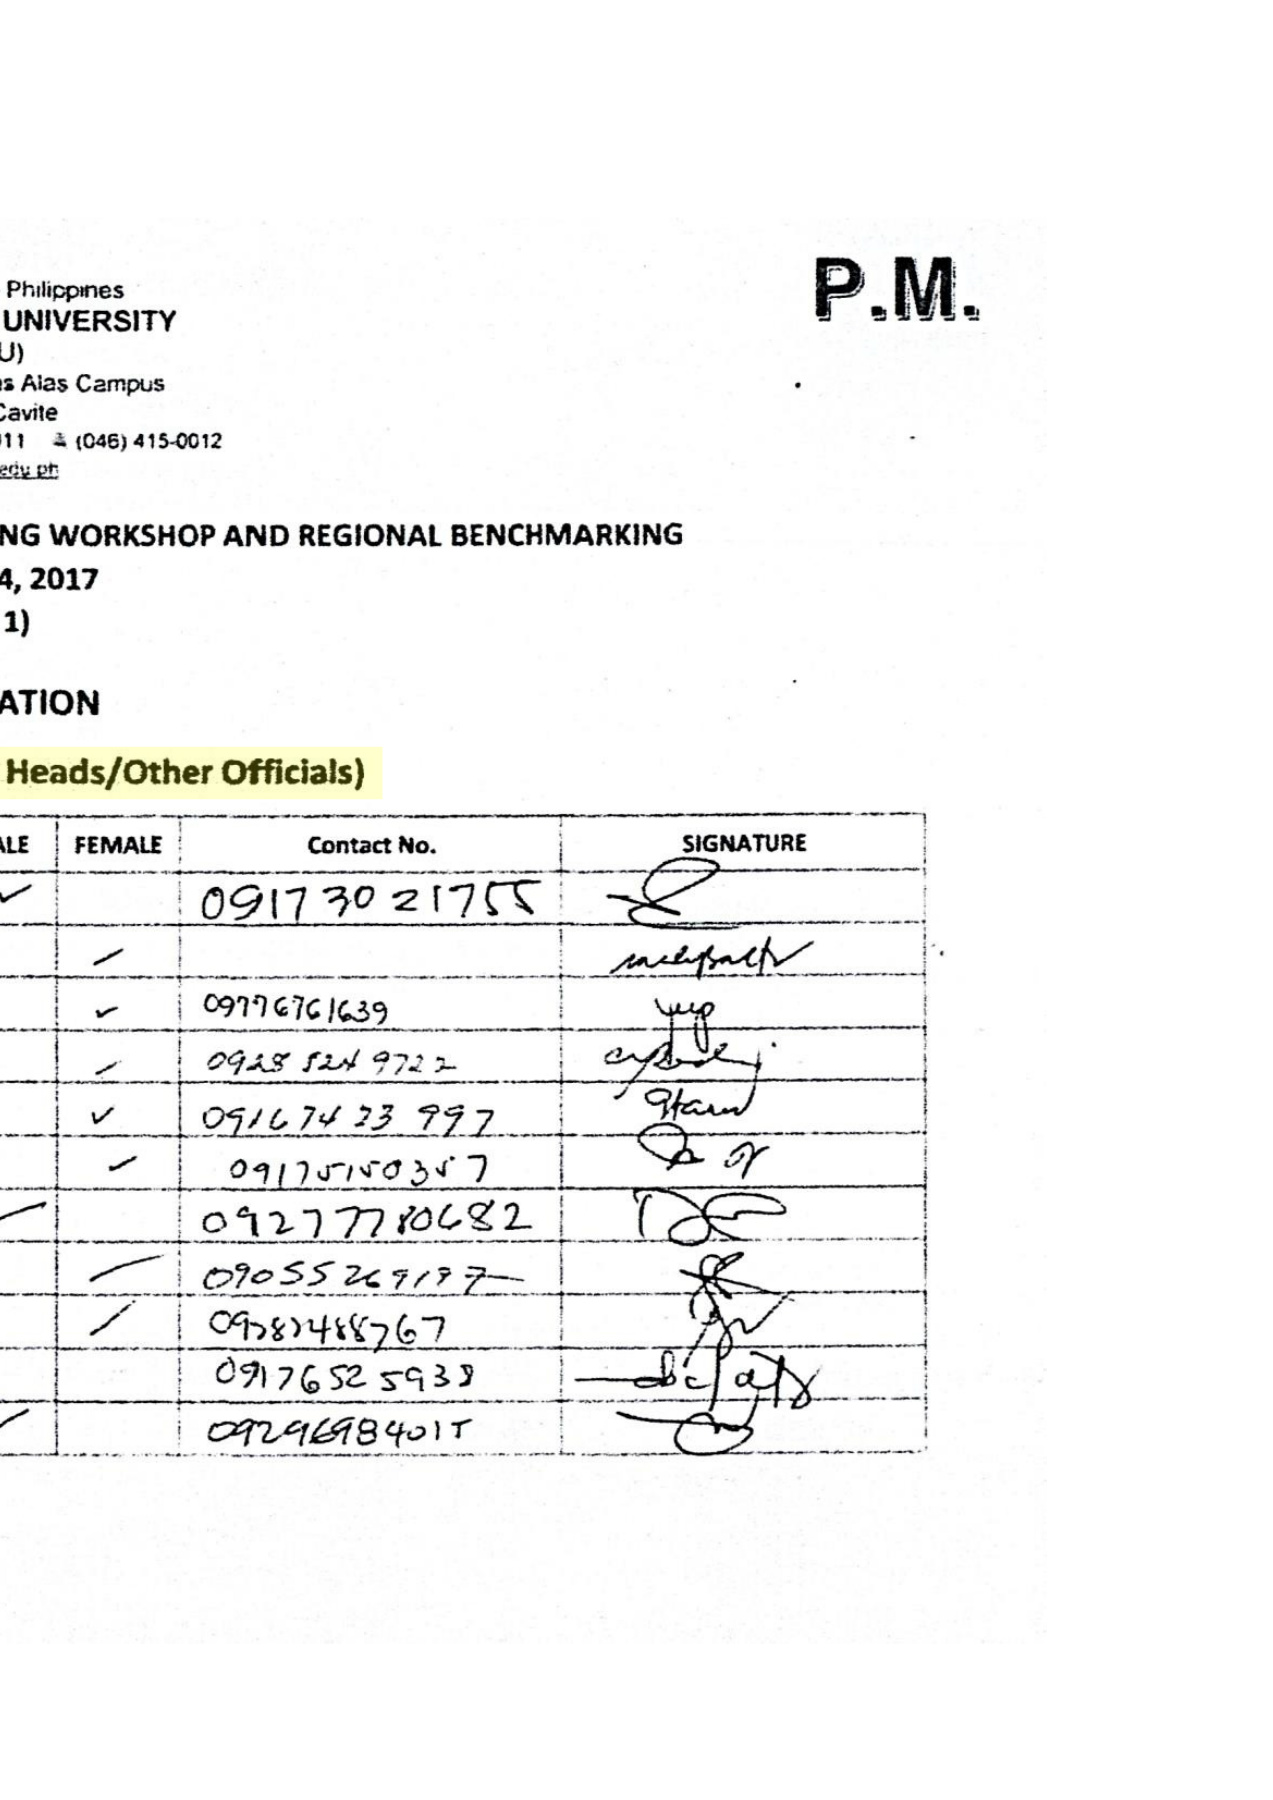 P.M.
Philippines
UNIVERSITY
U)
as Alas Campus
Cavite
011 (046) 415-0012
edu.ph
NG WORKSHOP AND REGIONAL BENCHMARKING
4, 2017
1)
ATION
Heads/Other Officials)
ALE FEMALE Contact No. SIGNATURE
0917 30 21755
09776761639
0928 524 9722
0916 74 23 997
09175150357
09277780682
09055269197
09176525938
09296984015